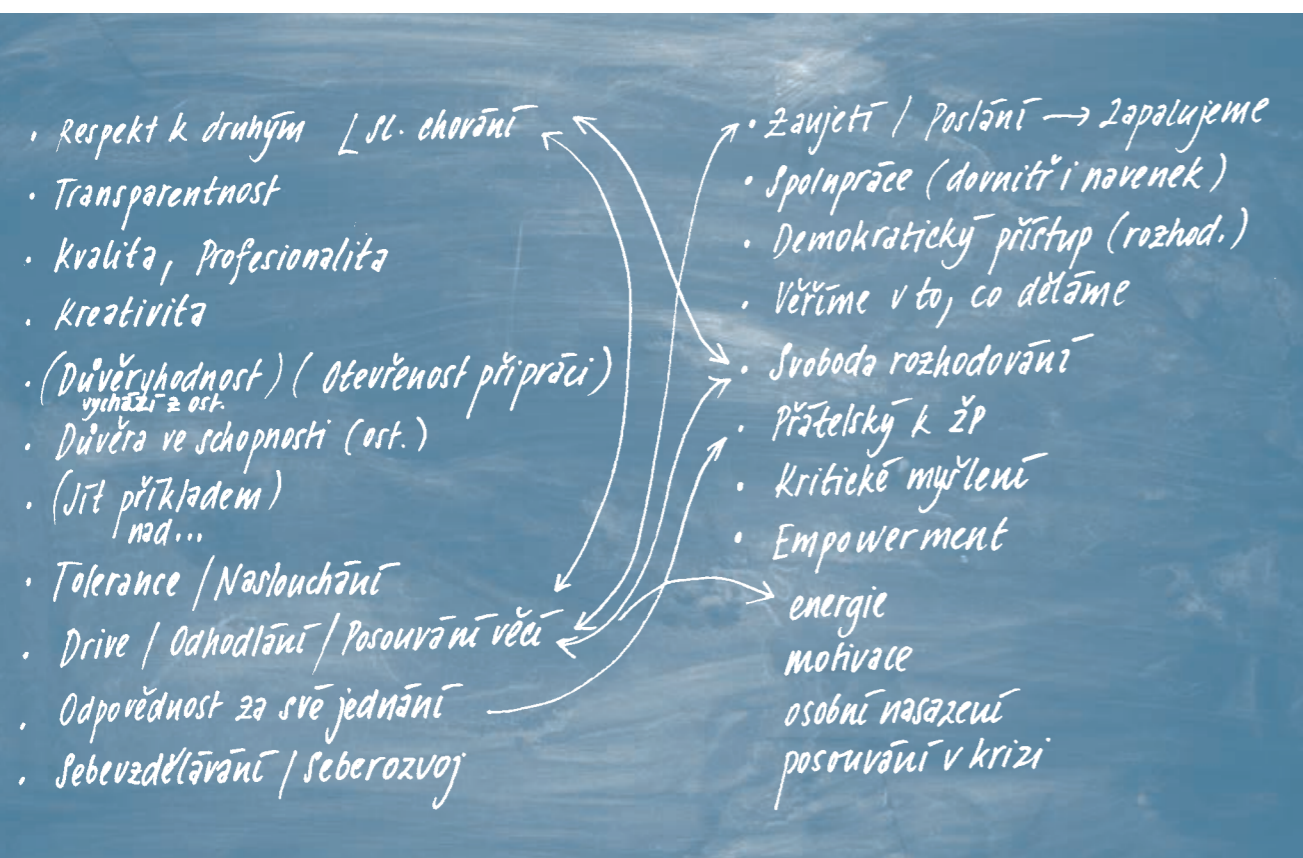 · Respekt k druhým / sl. chování
· Transparentnost
· Kvalita, Profesionalita
· Kreativita
· (Důvěryhodnost) (Otevřenost při práci)
vychází z ost.
· Důvěra ve schopnosti (ost.)
· (Jít příkladem)
nad...
· Tolerance / Naslouchání
· Drive / Odhodlání / Posouvání věcí
· Odpovědnost za své jednání
· Sebevzdělávání / Seberozvoj
· Zaujetí / Poslání → Zapalujeme
· Spolupráce (dovnitř i navenek)
· Demokratický přístup (rozhod.)
· Věříme v to, co děláme
· Svoboda rozhodování
· Přátelský k ŽP
· Kritické myšlení
· Empowerment
energie
motivace
osobní nasazení
posouvání v krizi